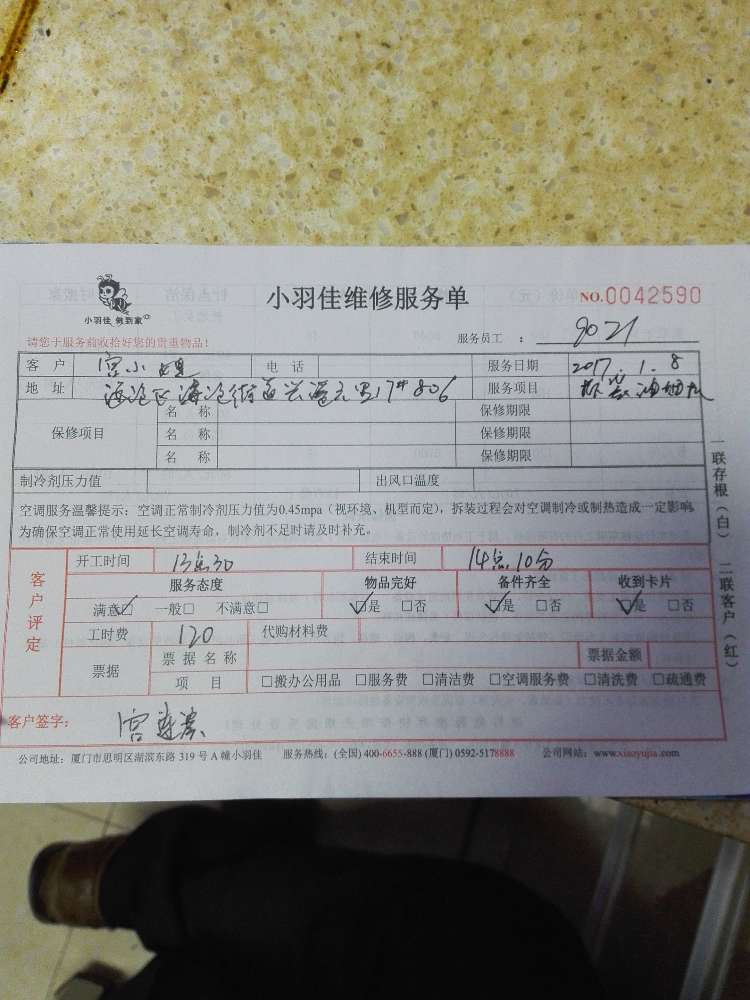 小羽佳 做到家
小羽佳维修服务单
NO.0042590
请您于服务前收拾好您的贵重物品！
服务员工 ： 9021
客 户 宫小姐 电 话 服务日期 2017.1.8
地 址 海沧区海沧街道兴港六里17#806 服务项目 拆装油烟机
保修项目
名 称 保修期限
名 称 保修期限
名 称 保修期限
制冷剂压力值 出风口温度
空调服务温馨提示：空调正常制冷剂压力值为0.45mpa（视环境、机型而定），拆装过程会对空调制冷或制热造成一定影响，
为确保空调正常使用延长空调寿命，制冷剂不足时请及时补充。
客户评定
开工时间 13点30 结束时间 14点10分
服务态度 物品完好 备件齐全 收到卡片
满意☑ 一般□ 不满意□ ☑是 □否 ☑是 □否 ☑是 □否
工时费 120 代购材料费
票据 票 据 名 称 票据金额
项 目 □搬办公用品 □服务费 □清洁费 □空调服务费 □清洗费 □疏通费
客户签字： 宫
公司地址：厦门市思明区湖滨东路 319 号 A 幢小羽佳 服务热线：(全国) 400-6655-888 (厦门) 0592-5178888 公司网站：www.xiaoyujia.com
一联存根（白） 二联客户（红）